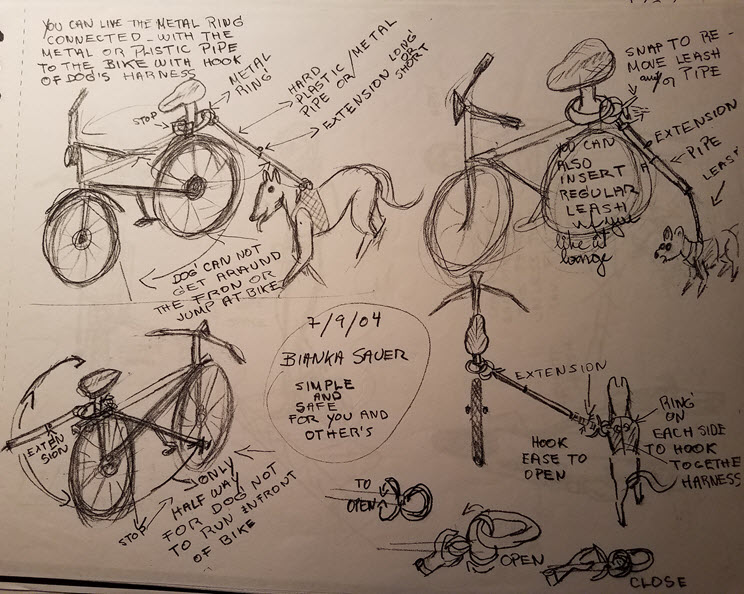 YOU CAN LIVE THE METAL RING
CONNECTED - WITH THE
METAL OR PLISTIC PIPE
TO THE BIKE WITH HOOK
OF DOG'S HARNESS
METAL
RING
STOP
HARD
PLASTIC/METAL
PIPE OR
EXTENSION LONG
OR
SHORT
DOG CAN NOT
GET ARAUND
THE FRON OR
JUMP AT BIKE
SNAP TO RE-
MOVE LEASH
and/or PIPE
EXTENSION
PIPE
LEASH
YOU CAN
ALSO
INSERT
REGULAR
LEASH
if you
like it
longe
7/9/04
BIANKA SAUER
SIMPLE
AND
SAFE
FOR YOU AND
OTHER'S
EXTEN
SION
STOP
ONLY
HALF WAY
FOR DOG NOT
TO RUN INFRONT
OF BIKE
EXTENSION
HOOK
EASE TO
OPEN
RING
ON
EACH SIDE
TO HOOK
TOGETHE
HARNESS
TO
OPEN
OPEN
CLOSE